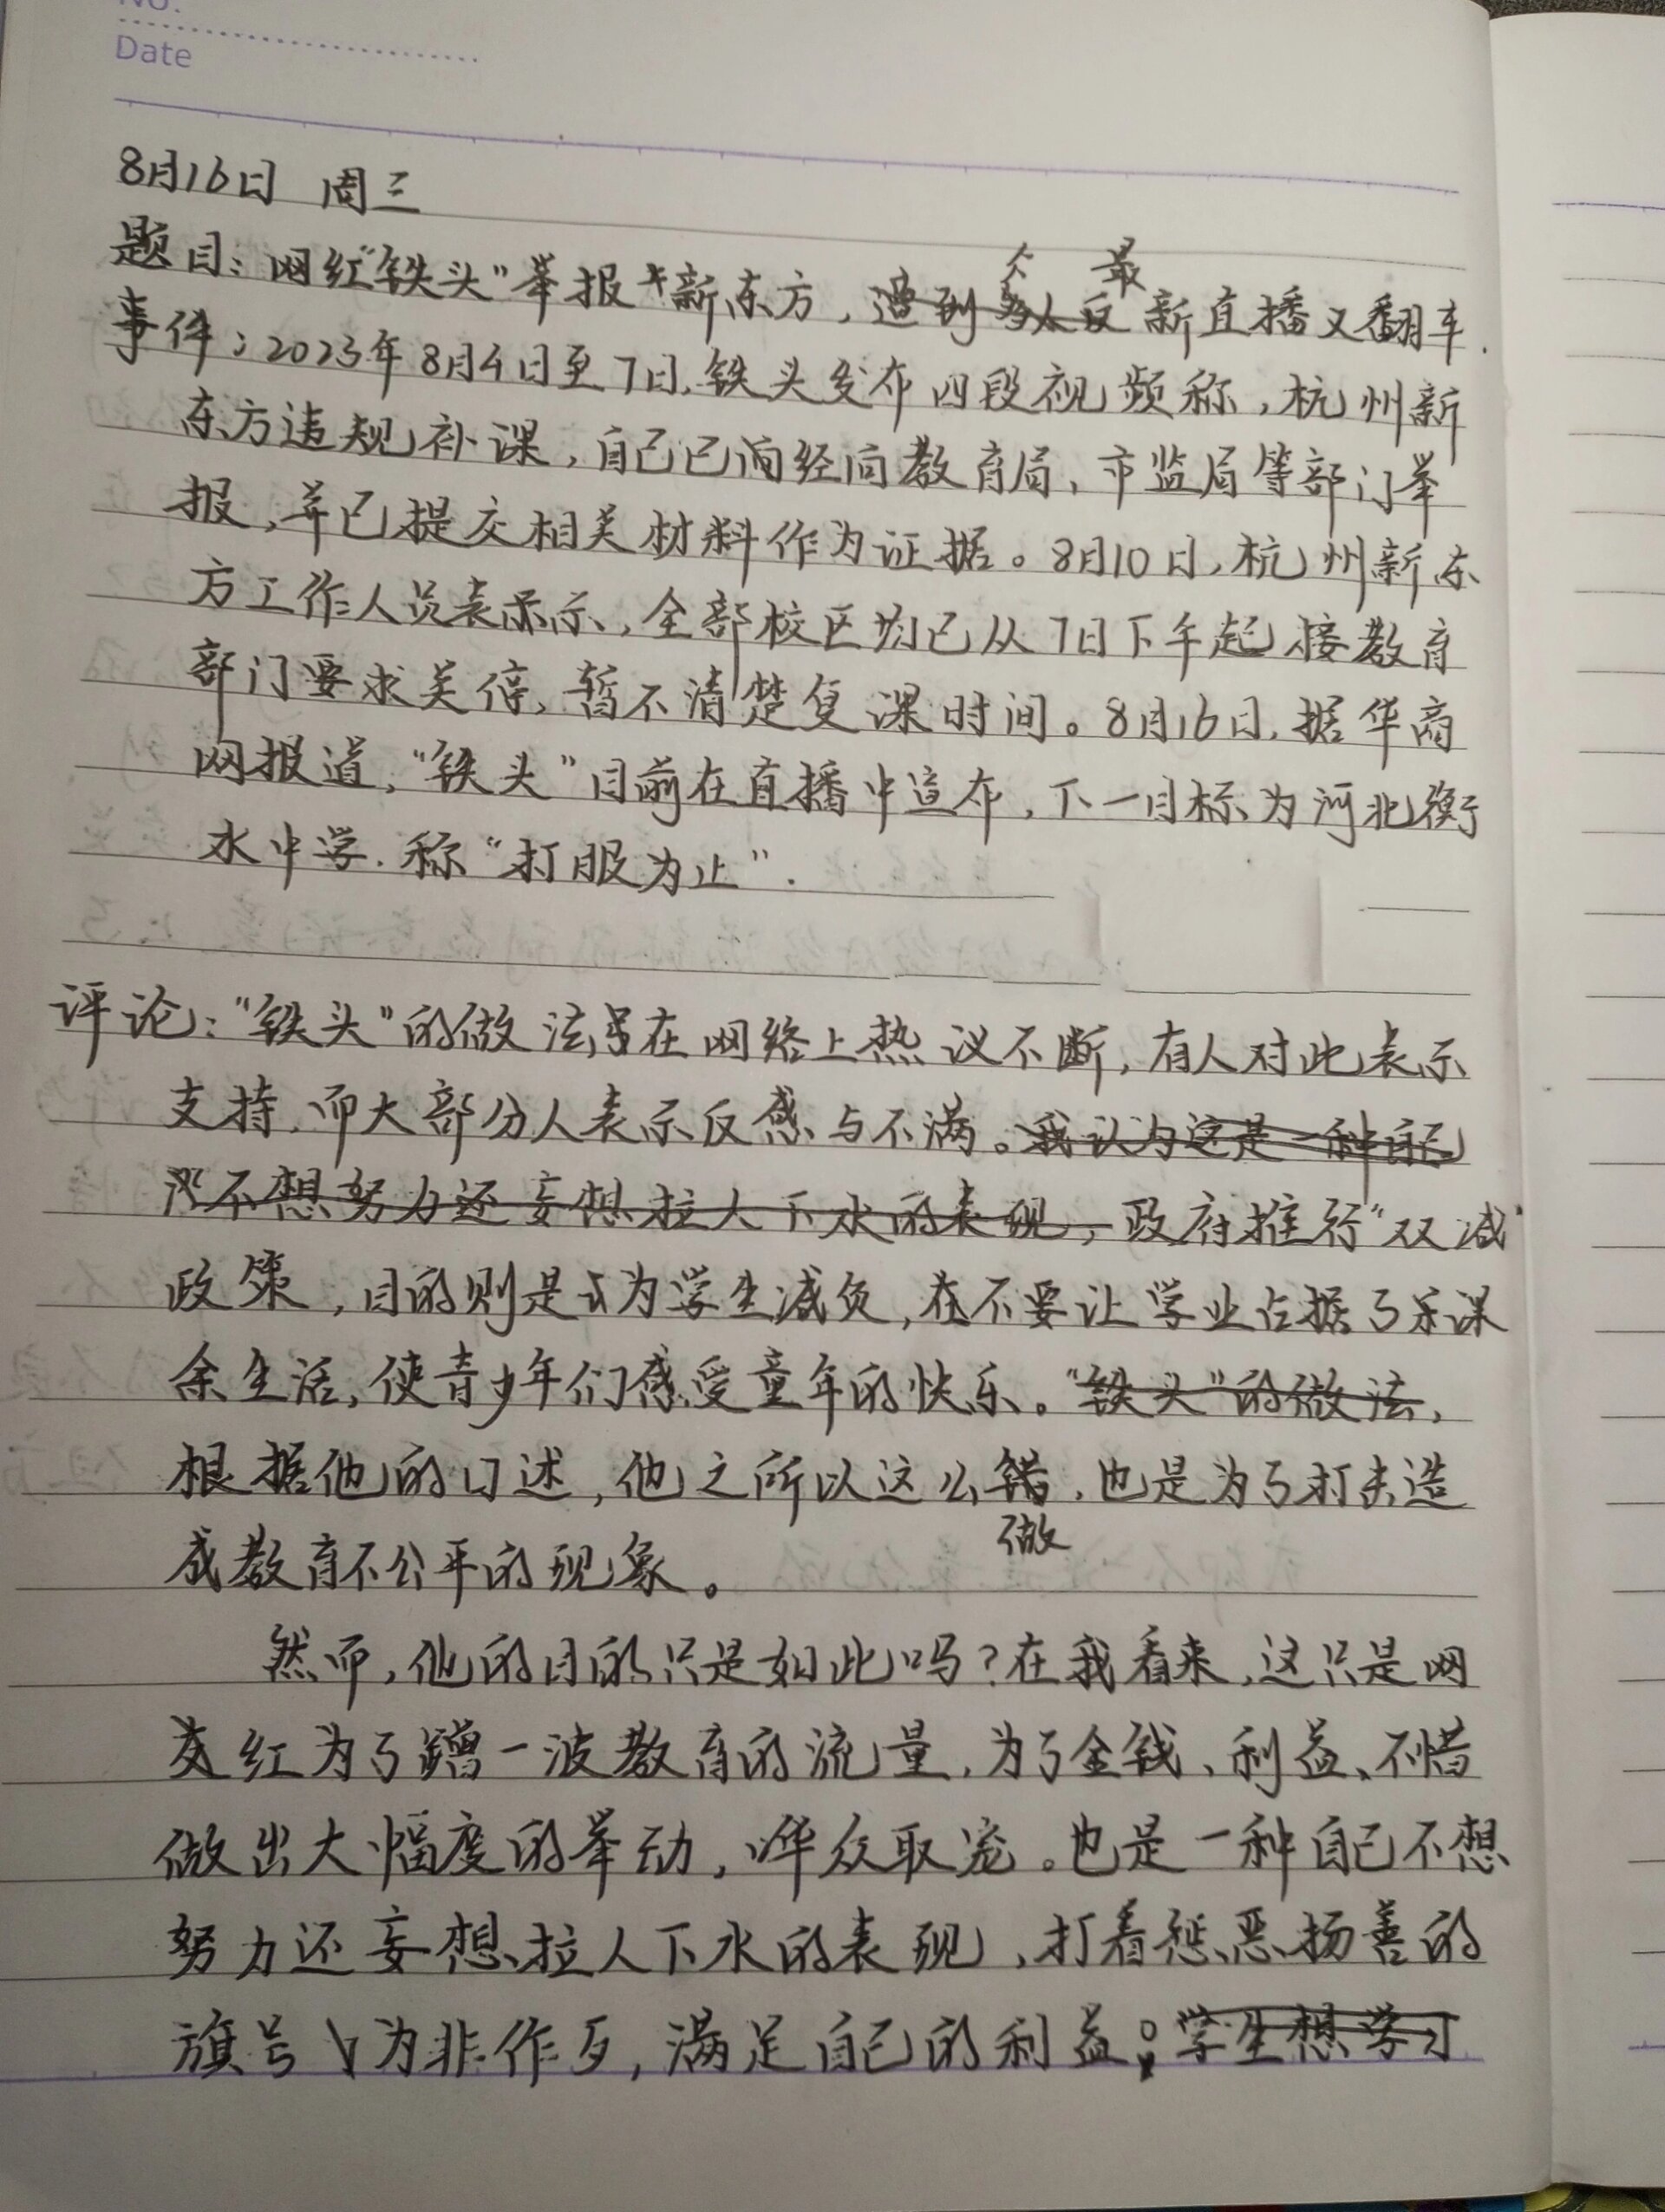 No.
Date
8月16日 周三
题目：网红“铁头”举报新东方，遭到多人反最新直播又翻车.
事件：2023年8月4日至7日，铁头发布四段视频称，杭州新
东方违规补课，自己已向经向教育局、市监局等部门举
报，并已提交相关材料作为证据。8月10日，杭州新东
方工作人员表示示，全部校区均已从7日下午起接教育
部门要求关停，暂不清楚复课时间。8月16日，据华商
网报道，“铁头”目前在直播中宣布，下一目标为河北衡
水中学.称“打服为止”.
评论：“铁头”的做法在网络上热议不断，有人对此表示
支持，而大部分人表示反感与不满。我认为这是一种自己
不想努力还妄想拉人下水的表现，政府推行“双减”
政策，目的则是为学生减负，在不要让学业占据了课
余生活，使青少年们感受童年的快乐。“铁头”的做法，
根据他的口述，他之所以这么错，也是为了打击造
做
成教育不公平的现象。
然而，他的目的只是如此吗？在我看来，这只是网
友红为了蹭一波教育的流量，为了金钱、利益、不惜
做出大幅度的举动，哗众取宠。也是一种自己不想
努力还妄想拉人下水的表现，打着惩恶扬善的
旗号为非作歹，满足自己的利益；学生想学习